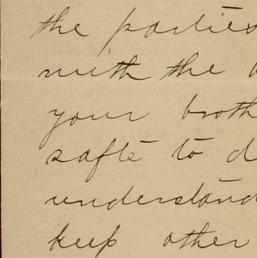 the parties
with the
your broth
safte to d
understand
keep other